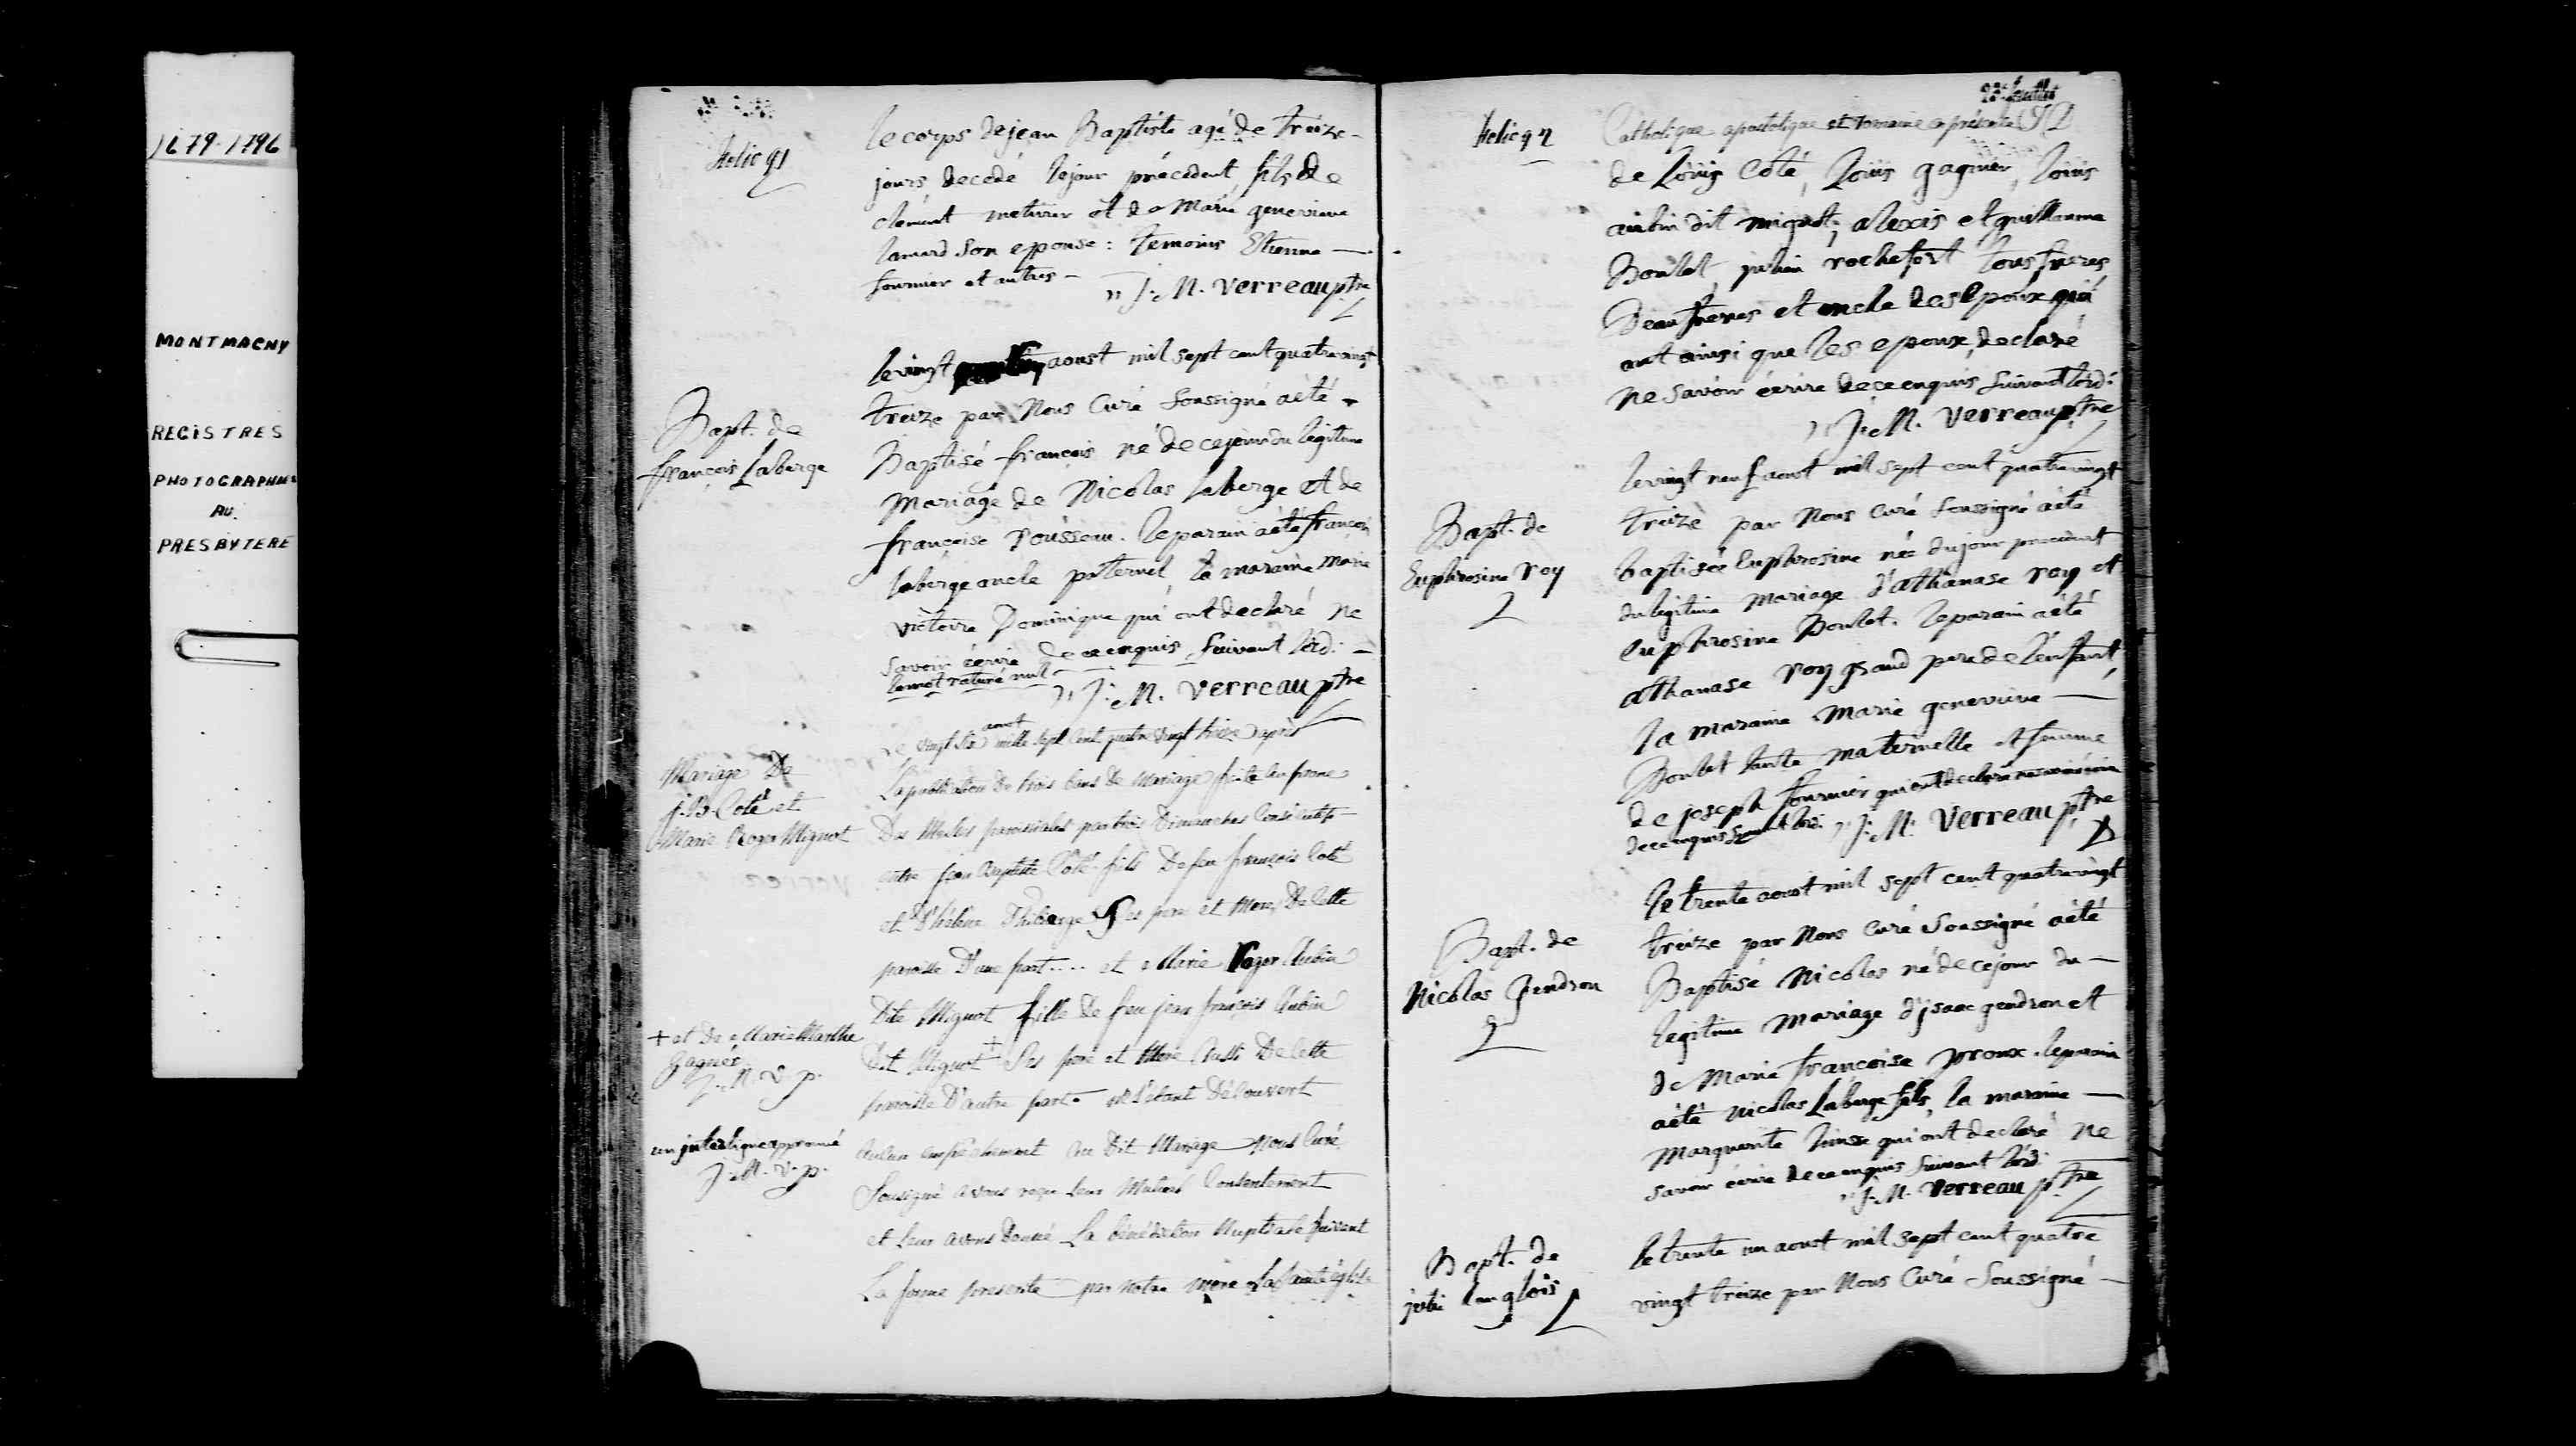 1679-1796
MONTMAGNY
REGISTRES
PHOTOGRAPHIES
AU
PRESBYTERE
folio 91
le corps de jean Baptiste agé de treize
jours decedé le jour précédent, fils de
clement metivier et de Marie genevieve
lamard son epouse: temoins Etienne
fournier et autres
J. M. verreau ptre
Bapt. de
françois Laberge
le vingt aoust mil sept cent quatre vingt
treize par Nous Curé soussigné a èté
Baptisé françois né de ce jour du legitime
mariage de Nicolas laberge et de
françoise rousseau. le parain a èté françois
laberge oncle paternel, la maraine marie
victoire Dominique qui ont declaré ne
savoir écrire de ce enquis suivant l'ord:
le mot raturé nul
J. M. verreau ptre
Mariage De
J. B. Coté et
Marie Roger Mignot
Le vingt six aout mille sept Cent quatre vingt treize après
La publication de trois bans de Mariage faite au prone
Des Messes paroissiales par trois Dimanches Consécutifs
entre Jean Baptiste Coté fils De feu françois Coté
et D'hélène Thiberge Ses pere et Mere De Cette
paroisse D'une part.... et Marie Roger Aubin
Dite Mignot fille de feu jean françois Aubin
Dit Mignot + Ses pere et Mere Aussi De Cette
paroisse D'autre part. ne S'étant Découvert
Aucun empêchement au Dit Mariage Nous Curé
Sousigné avons reçu leur Mutuel Consentement
et leur avons Donné La bénédiction Nuptiale suivant
La forme prescrite par notre mère La Sainte église
+ et De Marie Marthe
Gagnés
J. M. v. p.
un interligne approuvé
J. M. v. p.
folio 92
Catholique apostolique et romaine en présence
de Loüis Côté, Loüis gagnier, loüis
aubin dit mignot, alexis et guillaume
Boulet, julien rochefort tous freres,
Beaufreres et oncle des epoux qui
ont ainsi que les epoux declaré
ne savoir écrire de ce enquis suivant l'ord:
J. M. verreau ptre
Bapt. de
Euphrosine roy
le vingt neuf aoust mil sept cent quatre vingt
treize par Nous Curé soussigné a èté
baptisée Euphrosine née du jour precedent
du legitime mariage d'athanase roy et
Euphrosine Boulet. le parain a èté
athanase roy grand pere de l'enfant,
la maraine Marie genevieve
Boulet tante maternelle et femme
de joseph fournier qui ont declaré ne savoir écrire
de ce enquis suivant l'ord: J. M. verreau ptre
Bapt. de
Nicolas Gendron
le trente aoust mil sept cent quatre vingt
treize par Nous Curé Soussigné a èté
Baptisé Nicolas né de ce jour du
legitime mariage d'jsaac gendron et
de Marie françoise proux. le parain
a èté Nicolas Laberge fils, la maraine
marguerite qui ont declaré ne
savoir écrire de ce enquis suivant l'ord:
J. M. verreau ptre
Bapt. de
langlois
le trente un aoust mil sept cent quatre
vingt treize par Nous Curé Soussigné